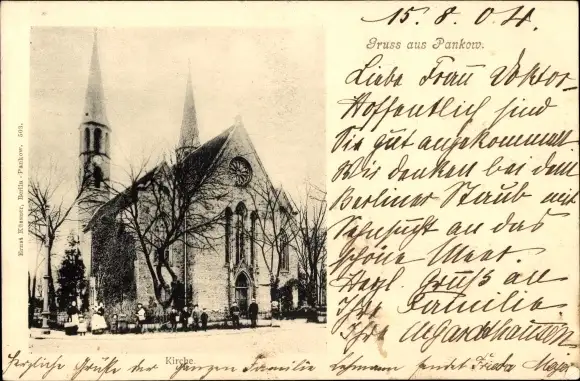 15. 8. 04.
Gruss aus Pankow.
Liebe Frau Doktor
Hoffentlich sind
Sie gut angekommen.
Wir denken bei dem
Berliner Staub mit
Sehnsucht an das
schöne Meer.
Herzl. Gruß an
Ihre Familie
Ihre
Ernst Kössner, Berlin-Pankow. 503.
Kirche.
Herzliche Grüße der ganzen Familie Lehmann sendet Frieda